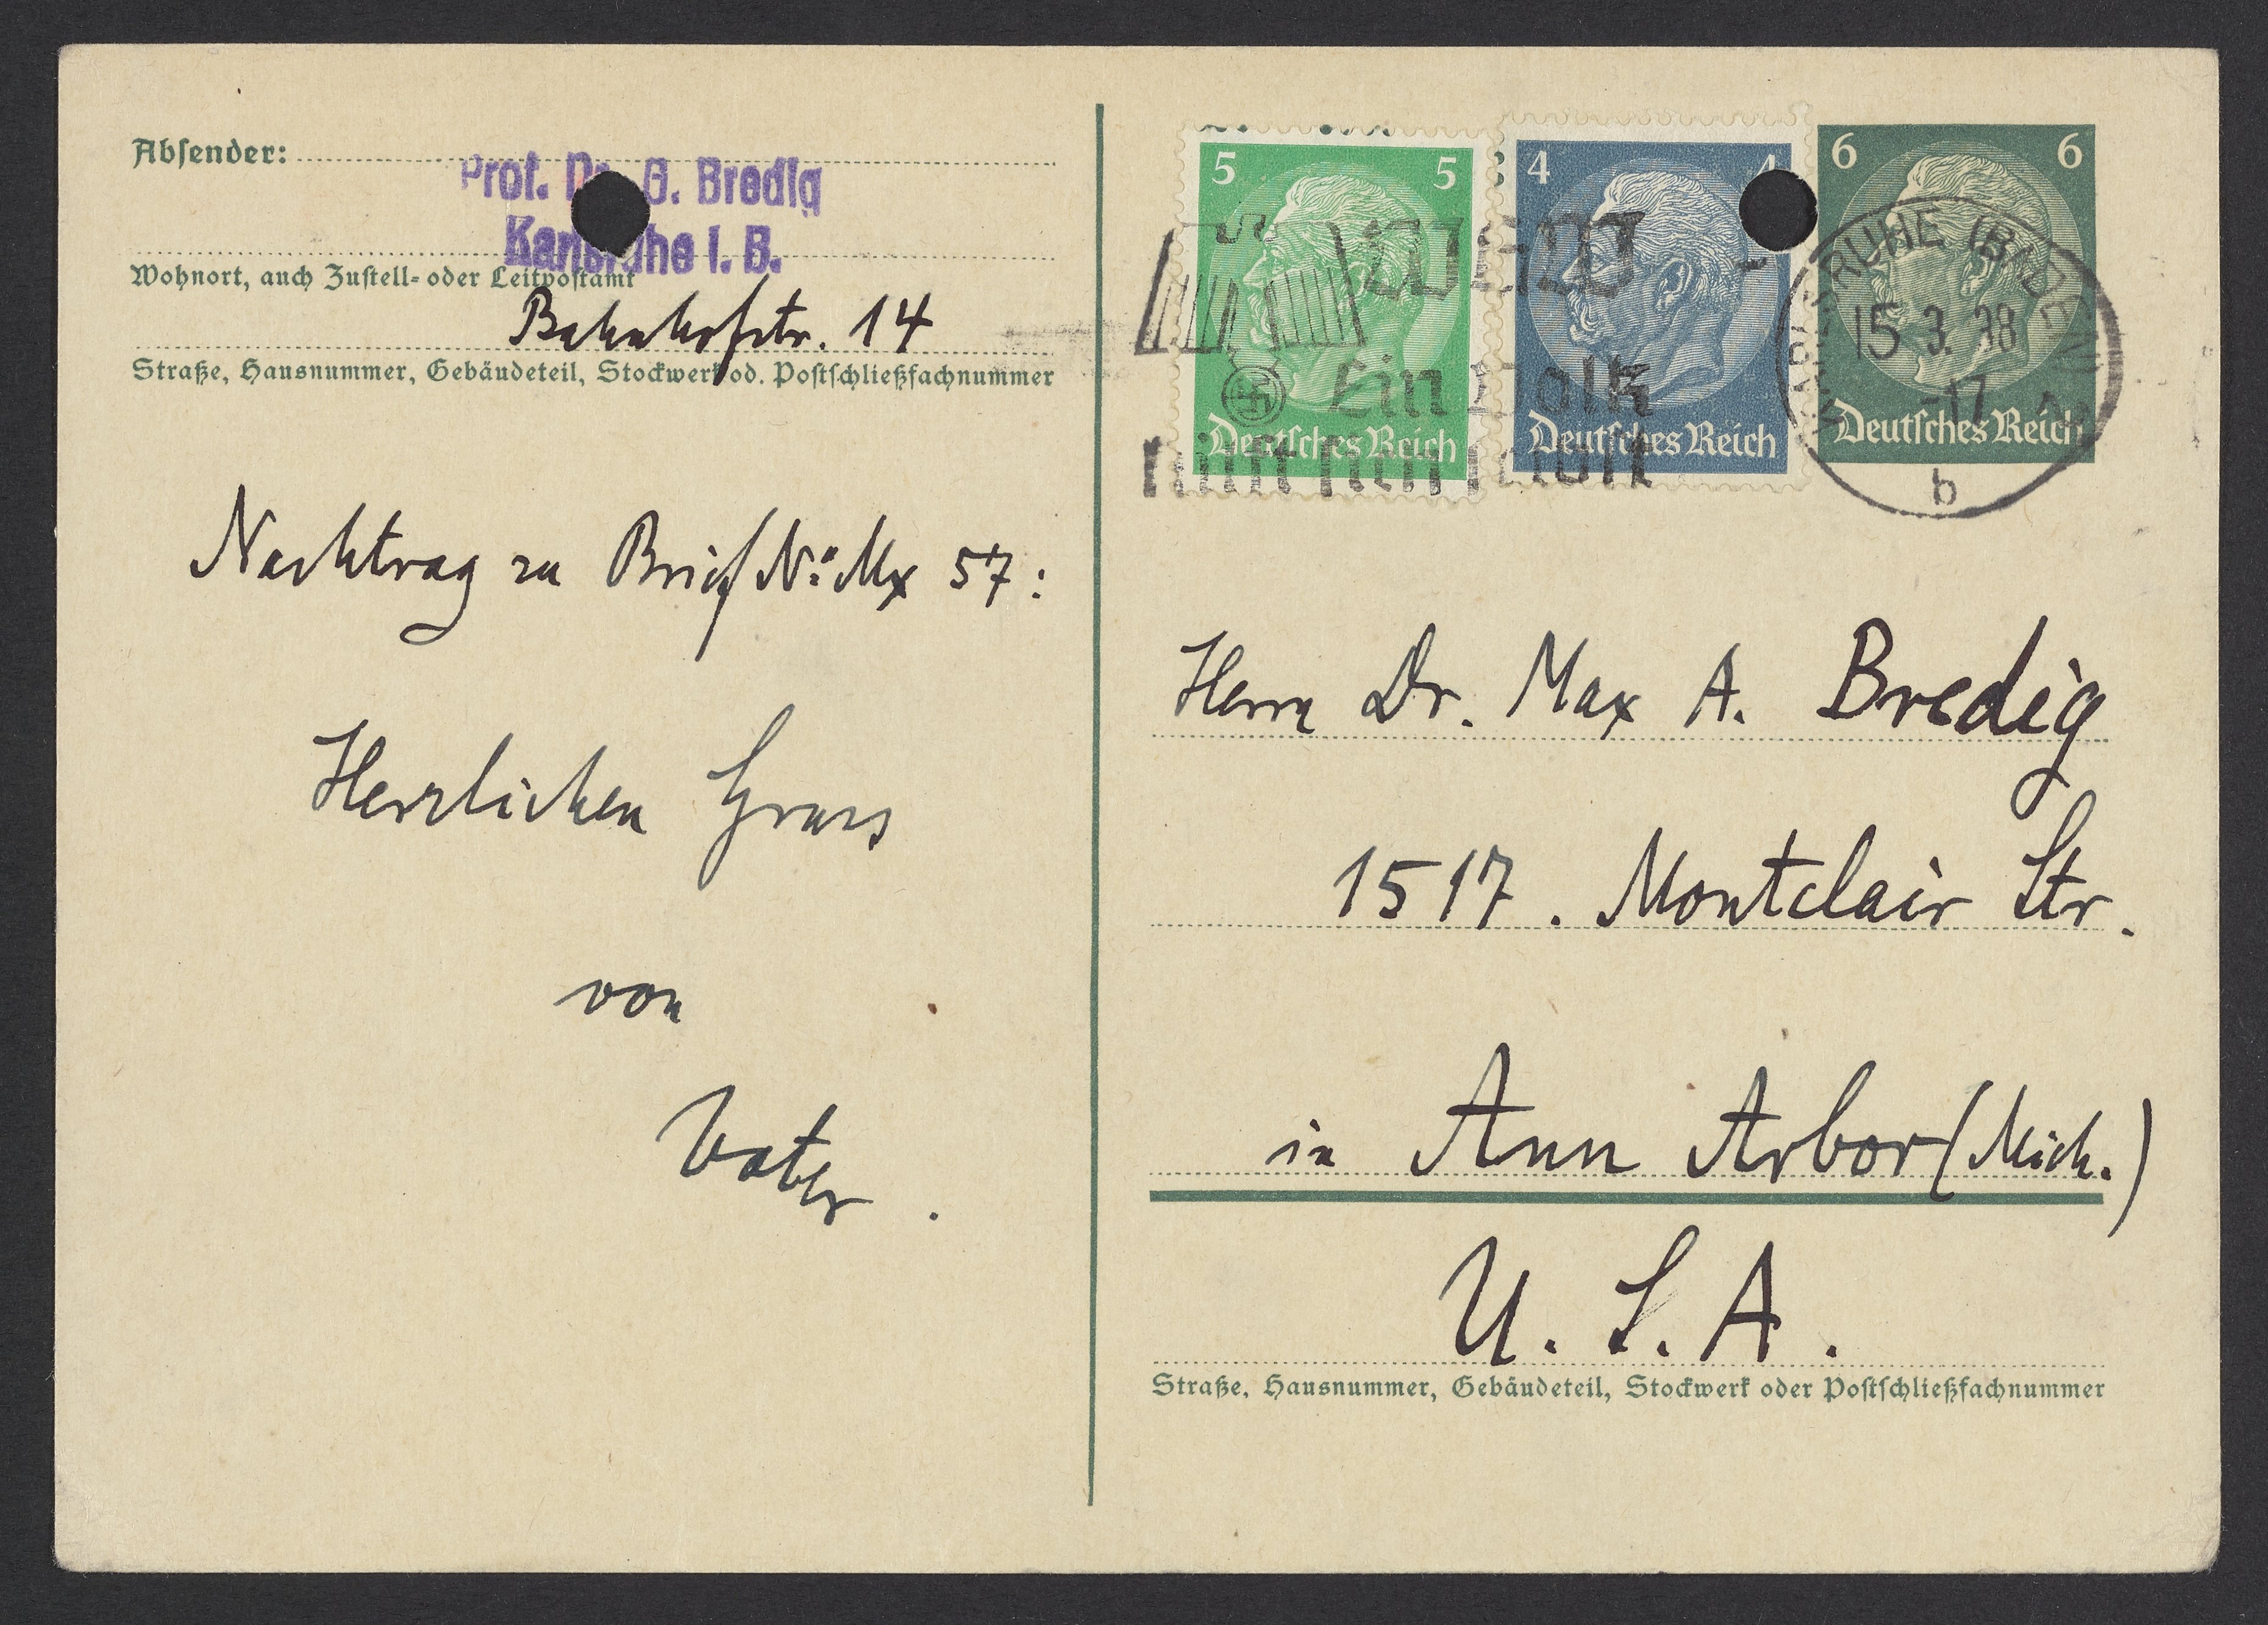 Absender:
Prof. Dr. G. Bredig
Karlsruhe i. B.
Wohnort, auch Zustell- oder Leitpostamt
Bahnhofstr. 14
Straße, Hausnummer, Gebäudeteil, Stockwerk od. Postschließfachnummer
Nachtrag zu Brief No. Mx 57:
Herzlichen Gruss
von
Vater.
5 5
Deutsches Reich
4 4
Deutsches Reich
6 6
Deutsches Reich
WHW
Ein Volk
hilft sich selbst
KARLSRUHE (BADEN) 2
15.3.38
-17
b
Herrn Dr. Max A. Bredig
1517. Montclair Str.
in Ann Arbor (Mich.)
U. S. A.
Straße, Hausnummer, Gebäudeteil, Stockwerk oder Postschließfachnummer